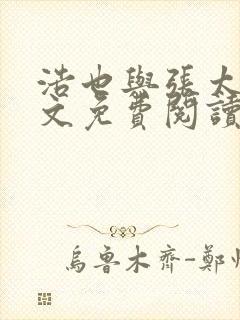 浩也與張太
文免費閱讀
烏魯木齊-鄭州